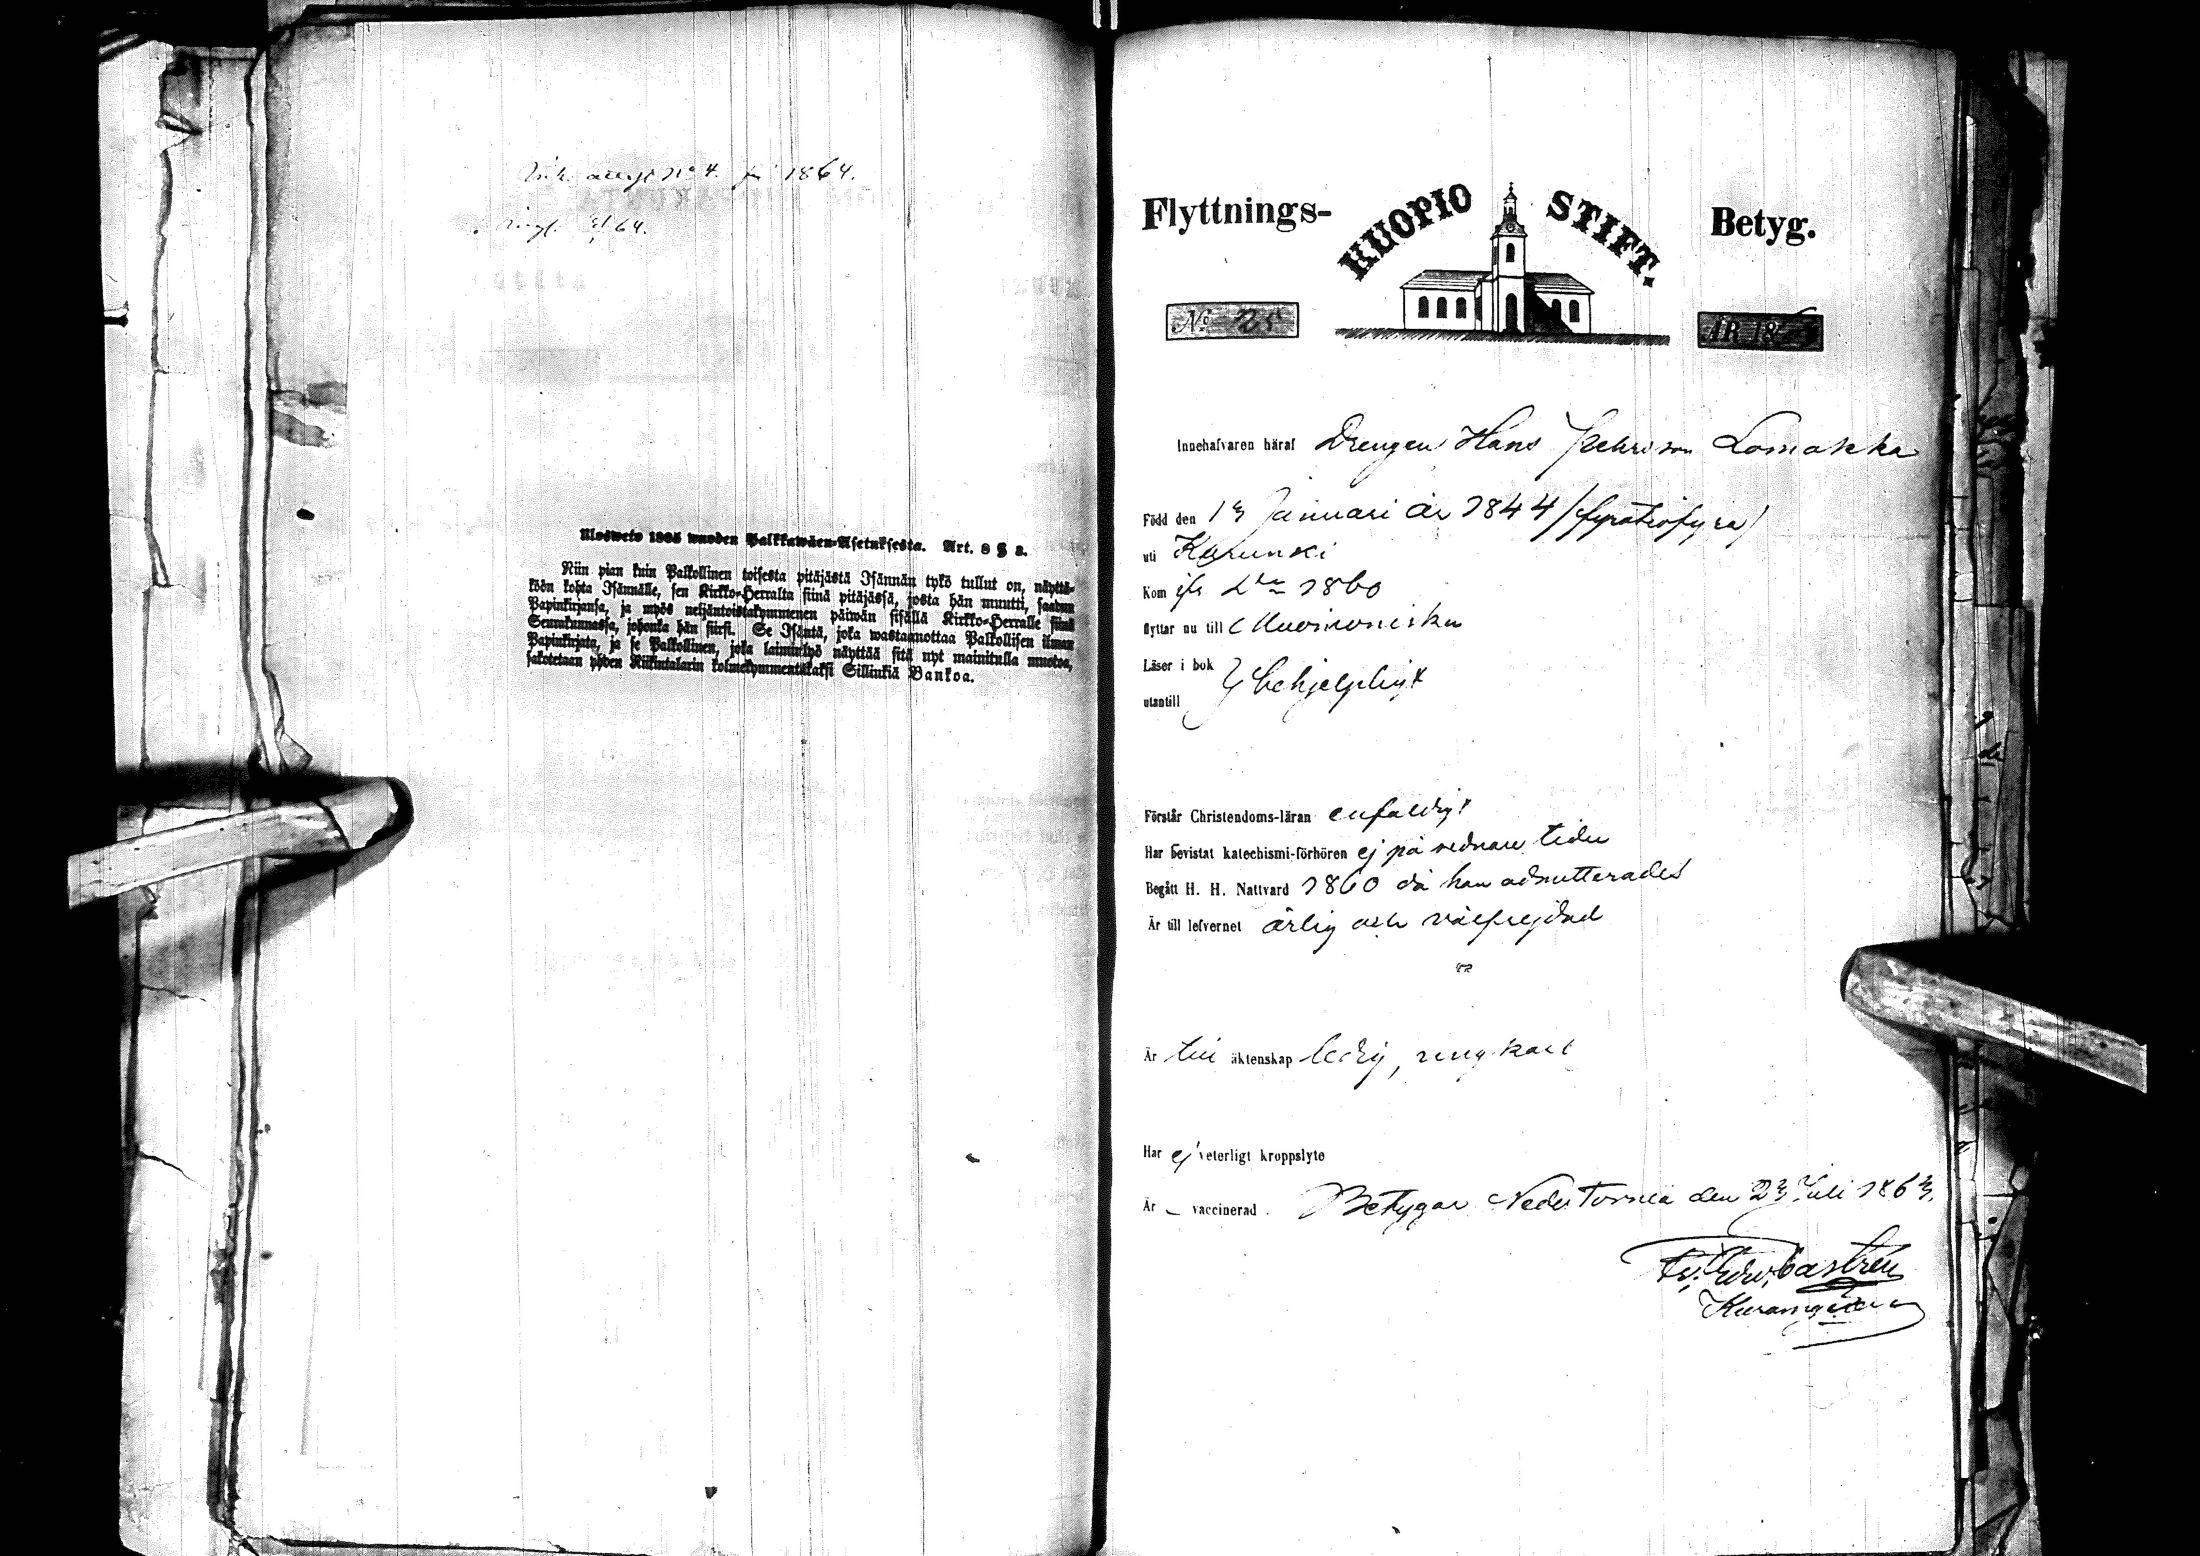 attest No 4. för 1864.
64.
Ulosweto 1865 wuoden Palkkawäen-Asetuksesta. Art. 8 § 3.
Niin pian kuin Palkollinen toisesta pitäjästä Isännän tykö tullut on, näyttä-
köön kohta Isännälle, sen Kirkko-Herralta siinä pitäjässä, josta hän muutti, saadun
Papinkirjansa, ja myös neljäntoistakymmenen päiwän sisällä Kirkko-Herralle siinä
Seurakunnassa, johonka hän siirsi. Se Isäntä, joka wastaanottaa Palkollisen ilman
Papinkirjata, ja se Palkollinen, joka laiminlyö näyttää sitä nyt mainitulla muotoa,
sakotetaan yhden Riikintalarin kolmekymmentäkaksi Sillinkiä Bankoa.
Flyttnings- KUOPIO STIFT. Betyg.
No 25 ÅR 18
Innehafvaren häraf Drengen Hans Pehrsson Lomakka
Född den 13 Januari år 1844 /fyratiofyra/
uti Karunki
Kom ifr 1860
flyttar nu till Muonioniska
Läser i bok
utantill } behjelpligt
Förstår Christendoms-läran enfaldigt
Har bevistat katechismi-förhören ej på sednare tider
Begått H. H. Nattvard 1860 då han admitterades
Är till lefvernet ärlig och välfrejdad
Är till äktenskap ledig, ungkarl
Har ej veterligt kroppslyte
Är – vaccinerad. Betygar Neder Torneå den 23 Juli 1863.
Castrén